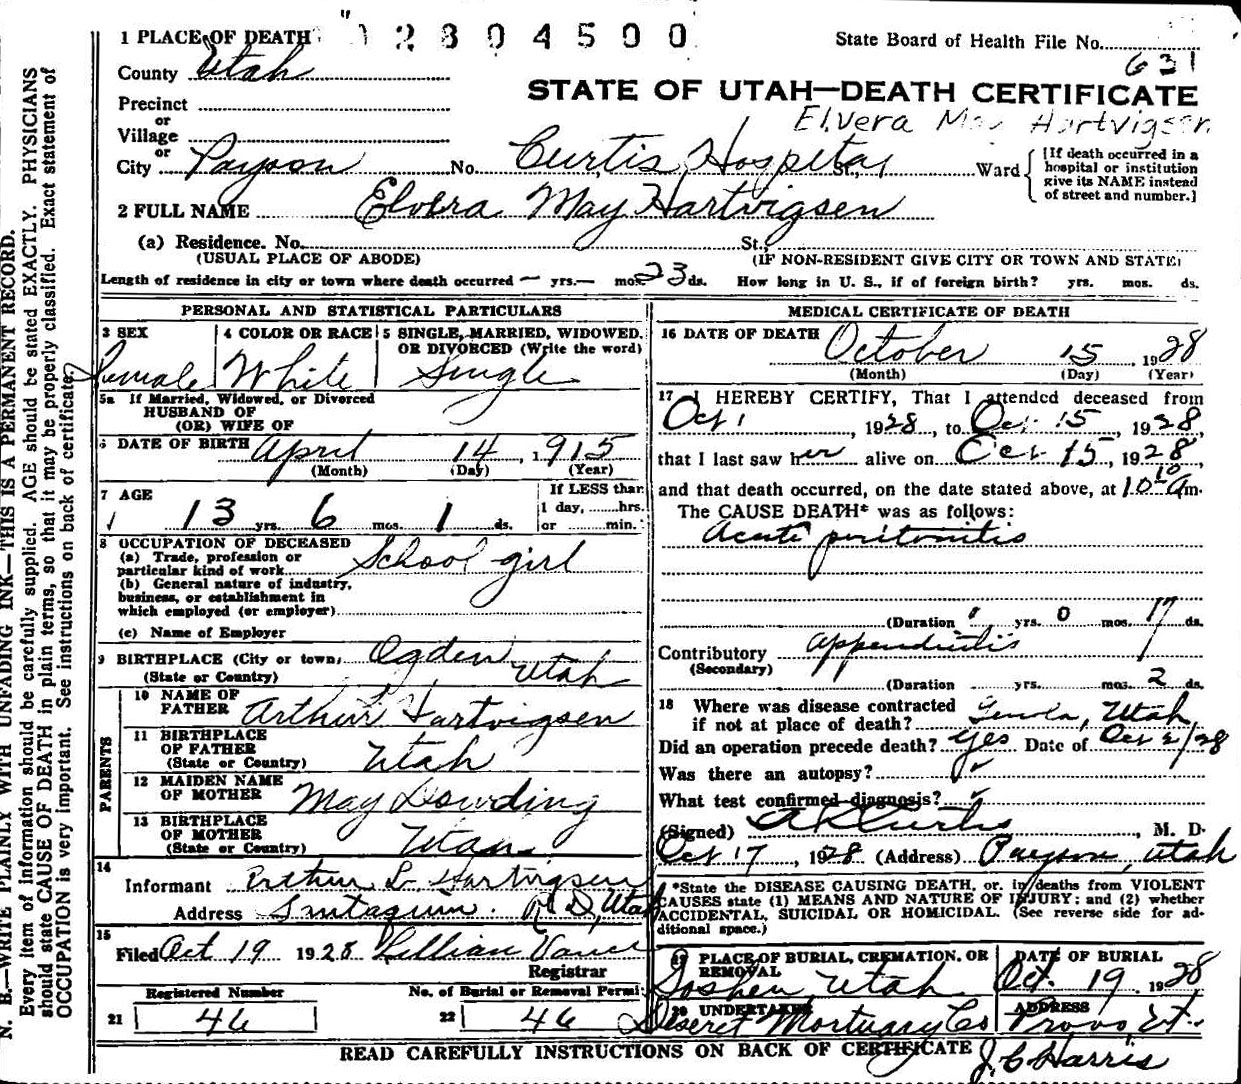 1 PLACE OF DEATH 02804500 State Board of Health File No.
631
County Utah
STATE OF UTAH—DEATH CERTIFICATE
Precinct
or
Village
Elvera May Hartvigsen
or
City Payson No. Curtis Hospital St., Ward
[If death occurred in a hospital or institution give its NAME instead of street and number.]
2 FULL NAME Elvera May Hartvigsen
(a) Residence. No. St.,
(USUAL PLACE OF ABODE) (IF NON-RESIDENT GIVE CITY OR TOWN AND STATE)
Length of residence in city or town where death occurred — yrs. — mos. 23 ds. How long in U. S., if of foreign birth? yrs. mos. ds.
PERSONAL AND STATISTICAL PARTICULARS
3 SEX
Female
4 COLOR OR RACE
White
5 SINGLE, MARRIED, WIDOWED.
OR DIVORCED (Write the word)
Single
5a If Married, Widowed, or Divorced
HUSBAND OF
(OR) WIFE OF
6 DATE OF BIRTH April 14, 1915
(Month) (Day) (Year)
7 AGE
13 yrs. 6 mos. 1 ds.
If LESS than
1 day, ......hrs.
or ......min.
8 OCCUPATION OF DECEASED
(a) Trade, profession or
particular kind of work School girl
(b) General nature of industry,
business, or establishment in
which employed (or employer)
(c) Name of Employer
9 BIRTHPLACE (City or town) Ogden
(State or Country) Utah
PARENTS
10 NAME OF
FATHER Arthur L Hartvigsen
11 BIRTHPLACE
OF FATHER
(State or Country) Utah
12 MAIDEN NAME
OF MOTHER May Dowding
13 BIRTHPLACE
OF MOTHER
(State or Country) Utah
14
Informant Arthur L Hartvigsen
Address Santaquin R D, Utah
15
Filed Oct 19 1928 Lillian Vance
Registrar
Registered Number No. of Burial or Removal Permit
21 46 22 46
MEDICAL CERTIFICATE OF DEATH
16 DATE OF DEATH October 15, 1928
(Month) (Day) (Year)
17 I HEREBY CERTIFY, That I attended deceased from
Oct 1, 1928, to Oct 15, 1928,
that I last saw her alive on Oct 15, 1928
and that death occurred, on the date stated above, at 10 10 a m.
The CAUSE DEATH* was as follows:
Acute peritonitis
(Duration yrs. 0 mos. 17 ds.
Contributory appendicitis
(Secondary)
(Duration yrs. mos. 2 ds.
18 Where was disease contracted
if not at place of death? Genola, Utah
Did an operation precede death? Yes Date of Oct 2/28
Was there an autopsy?
What test confirmed diagnosis?
(Signed) A L Curtis, M. D.
Oct 17, 1928 (Address) Payson, Utah
*State the DISEASE CAUSING DEATH, or, in deaths from VIOLENT
CAUSES state (1) MEANS AND NATURE OF INJURY; and (2) whether
ACCIDENTAL, SUICIDAL OR HOMICIDAL. (See reverse side for ad-
ditional space.)
19 PLACE OF BURIAL, CREMATION, OR
REMOVAL
Goshen Utah
DATE OF BURIAL
Oct. 19 1928
20 UNDERTAKER
Deseret Mortuary Co
ADDRESS
Provo, Ut.
READ CAREFULLY INSTRUCTIONS ON BACK OF CERTIFICATE
J. C. Harris
N. B.—WRITE PLAINLY WITH UNFADING INK—THIS IS A PERMANENT RECORD.
Every item of information should be carefully supplied. AGE should be stated EXACTLY. PHYSICIANS
should state CAUSE OF DEATH in plain terms, so that it may be properly classified. Exact statement of
OCCUPATION is very important. See instructions on back of certificate.